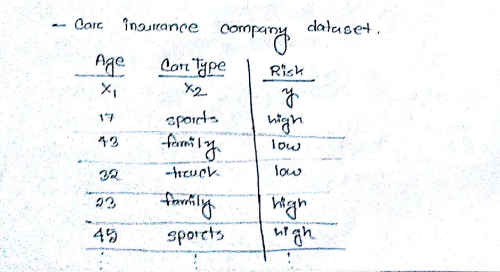 - Care insurance company dataset.
Age Car Type Risk
x₁ x₂ y
17 sports high
43 family low
32 truck low
23 family high
45 sports high
⋮ ⋮ ⋮